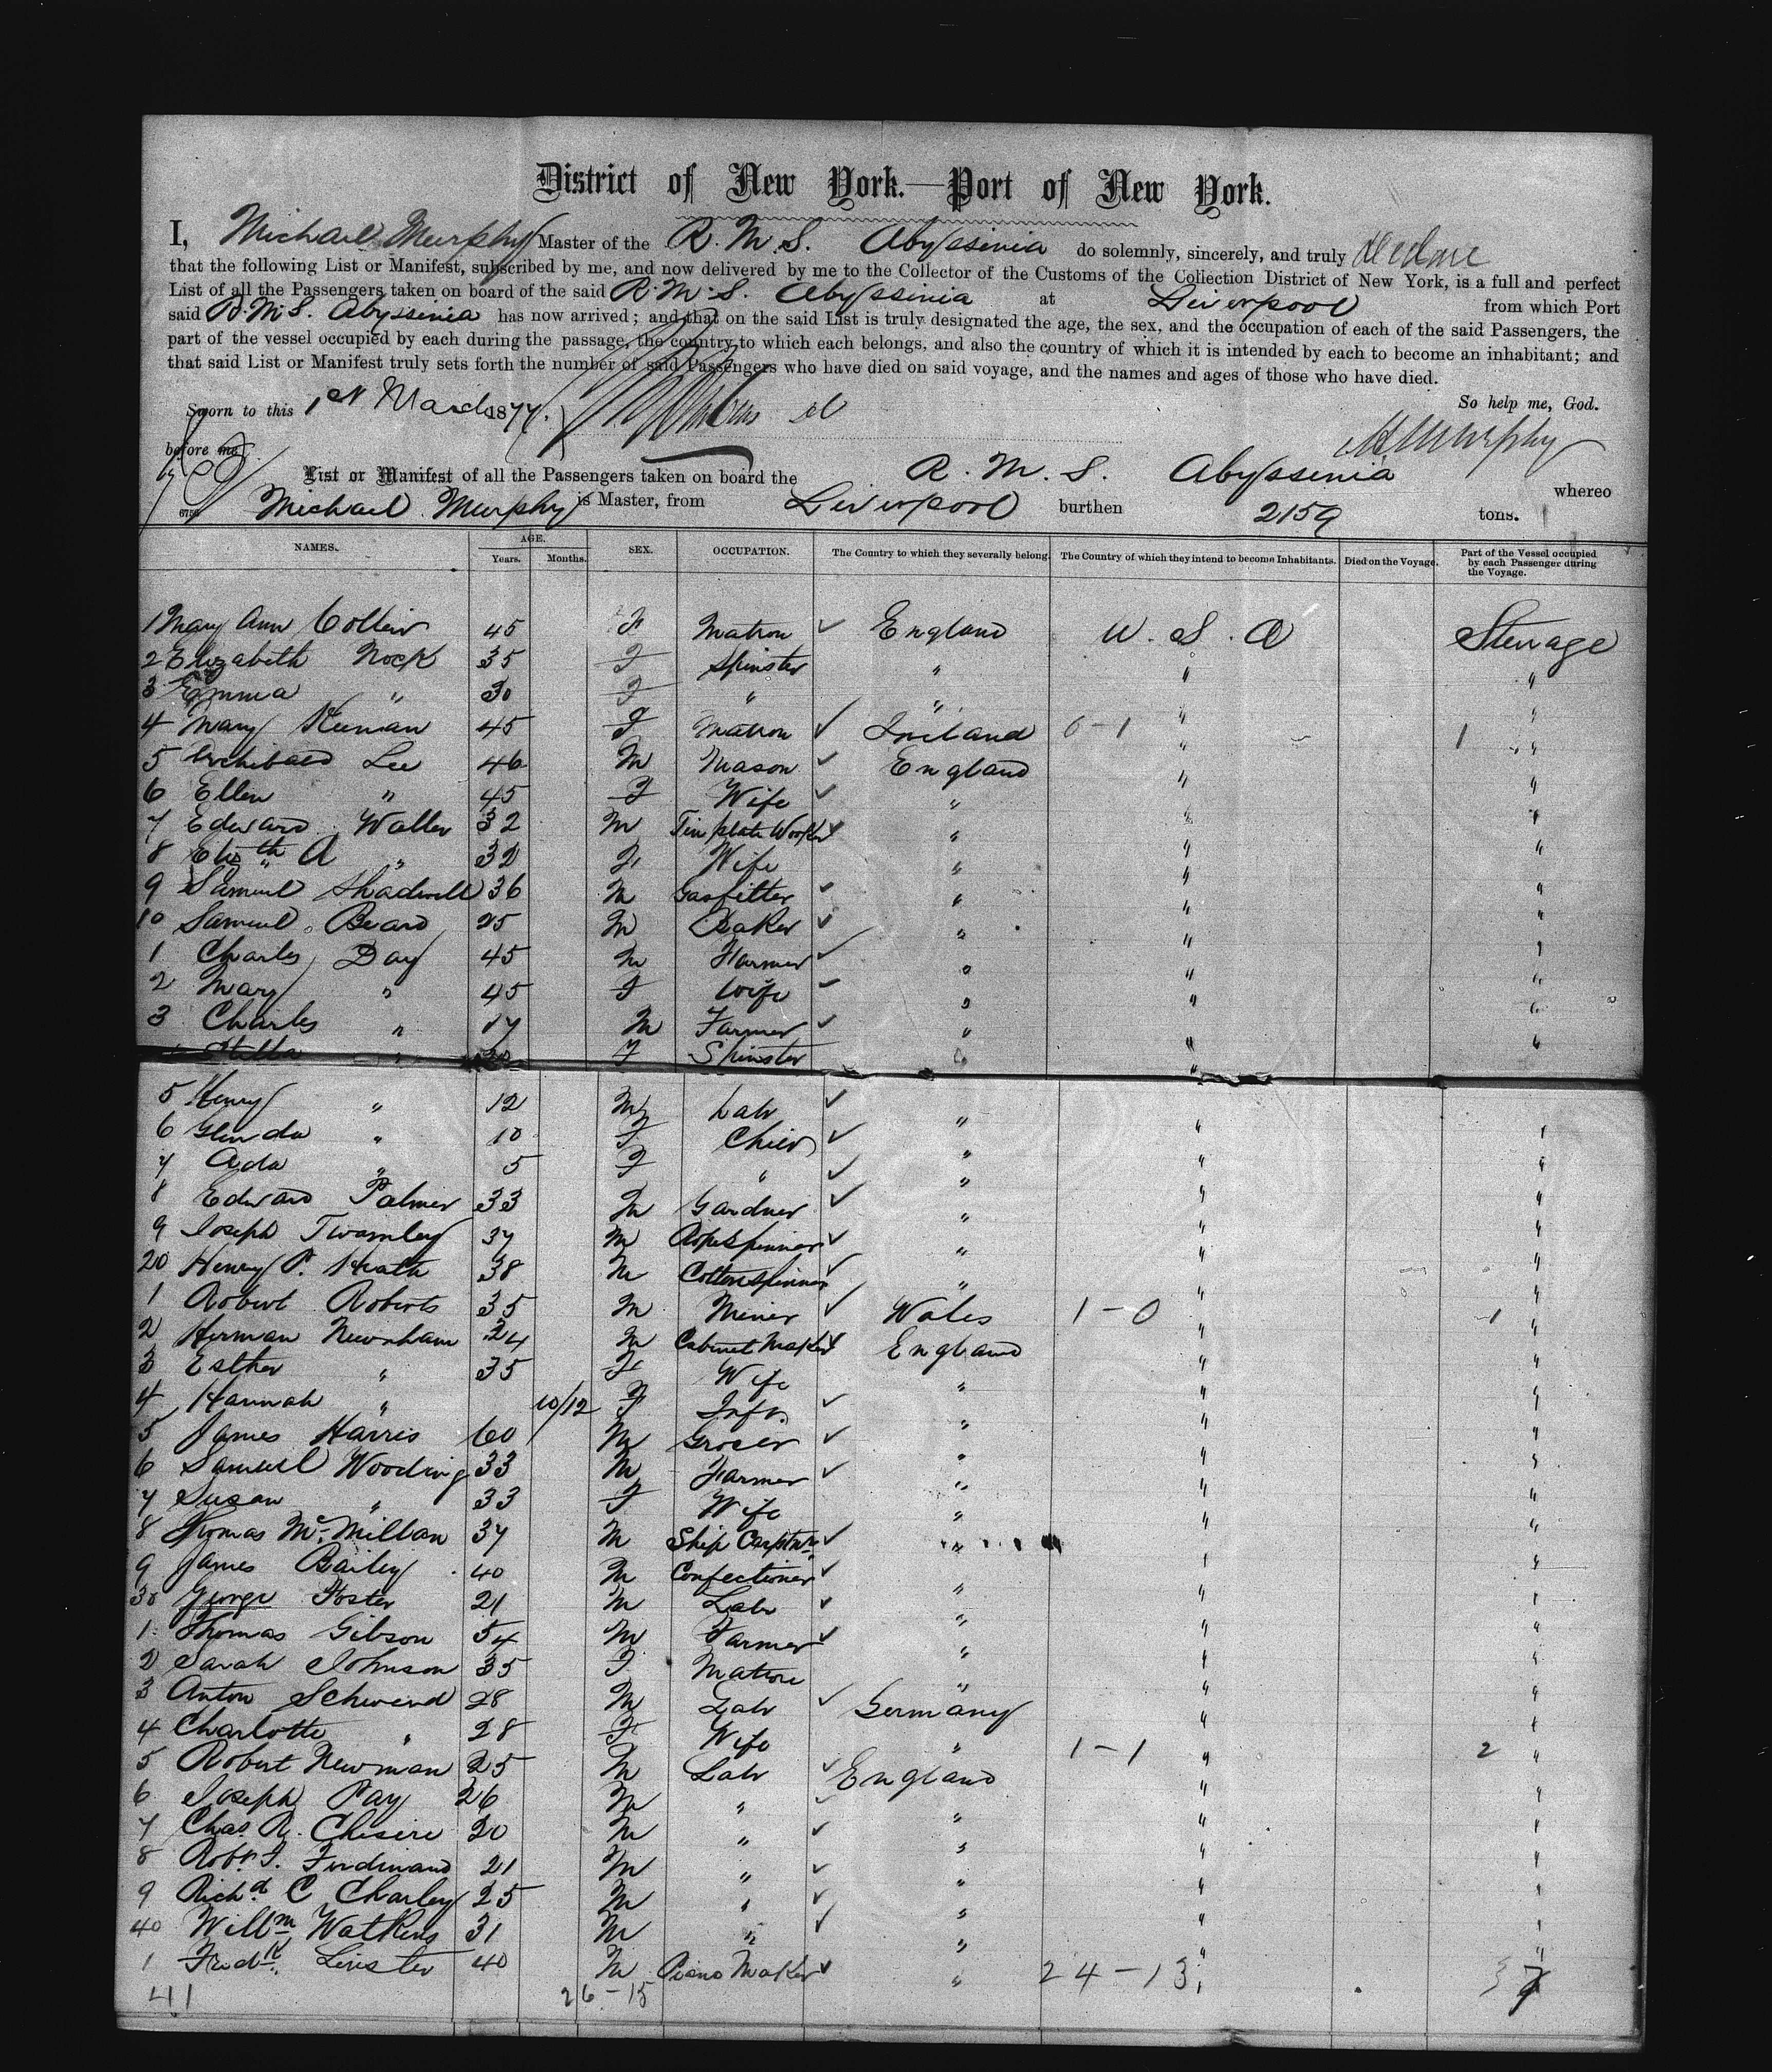 District of New York.—Port of New York.
I, Michael Murphy Master of the R. M. S. Abyssinia do solemnly, sincerely, and truly
that the following List or Manifest, subscribed by me, and now delivered by me to the Collector of the Customs of the Collection District of New York, is a full and perfect
List of all the Passengers taken on board of the said R. M. S. Abyssinia at Liverpool from which Port
said R. M. S. Abyssinia has now arrived; and that on the said List is truly designated the age, the sex, and the occupation of each of the said Passengers, the
part of the vessel occupied by each during the passage, the country to which each belongs, and also the country of which it is intended by each to become an inhabitant; and
that said List or Manifest truly sets forth the number of said Passengers who have died on said voyage, and the names and ages of those who have died.
Sworn to this 1st March 1877. So help me, God.
before me M Murphy
List or Manifest of all the Passengers taken on board the R. M. S. Abyssinia whereo
Michael Murphy is Master, from Liverpool burthen 2159 tons.
NAMES. AGE. Years. Months. SEX. OCCUPATION. The Country to which they severally belong. The Country of which they intend to become Inhabitants. Died on the Voyage. Part of the Vessel occupied by each Passenger during the Voyage.
1 Mary Ann 45 F Matron England U. S. A Steerage
2 Elizabeth Nock 35 F Spinster " " "
3 Emma " 30 F " " " "
4 Mary Keenan 45 F Matron Ireland 0-1 " 1 "
5 Archibald Lee 46 M Mason England " "
6 Ellen " 45 F Wife " " "
7 Edward Waller 32 M Tin plate Worker " " "
8 Elizth A " 32 F Wife " " "
9 Samuel Shadwell 36 M Gasfitter " " "
10 Samuel Beard 25 M Baker " " "
1 Charles Day 45 M Farmer " " "
2 Mary " 45 F Wife " " "
3 Charles " 17 M Farmer " " "
" F Spinster " "
5 Henry " 12 M Labr " " "
6 " 10 F Child " " "
7 Ada " 5 F " " " "
8 Edward Palmer 33 M Gardner " " "
9 Joseph Twamley 37 M Ropespinner " " "
20 Henry P. Heath 38 M Cottonspinner " " "
1 Robert Roberts 35 M Miner Wales 1-0 " 1 "
2 Herman Newnham 24 M Cabinet Maker England " "
3 Esther " 35 F Wife " " "
4 Hannah " 10/12 F Inft. " " "
5 James Harris 60 M Grocer " " "
6 Samuel Wooding 33 M Farmer " " "
7 Susan " 33 F Wife " " "
8 Thomas McMillan 37 M Ship Carptnr " " "
9 James Bailey 40 M Confectioner " " "
30 George Foster 21 M Labr " " "
1 Thomas Gibson 54 M Farmer " " "
2 Sarah Johnson 35 F Matron " " "
3 Anton Schwend 28 M Labr Germany " "
4 Charlotte " 28 F Wife " 1-1 " 2 "
5 Robert Newman 25 M Labr England " "
6 Joseph Pay 26 M " " " "
7 Chas R. Chesire 20 M " " " "
8 Robt F. Ferdinand 21 M " " " "
9 Richd C Charley 25 M " " " "
40 Willm Watkins 31 M " " " "
1 Fredk 40 M Piano Maker " 24-13 " 37
41 26-15